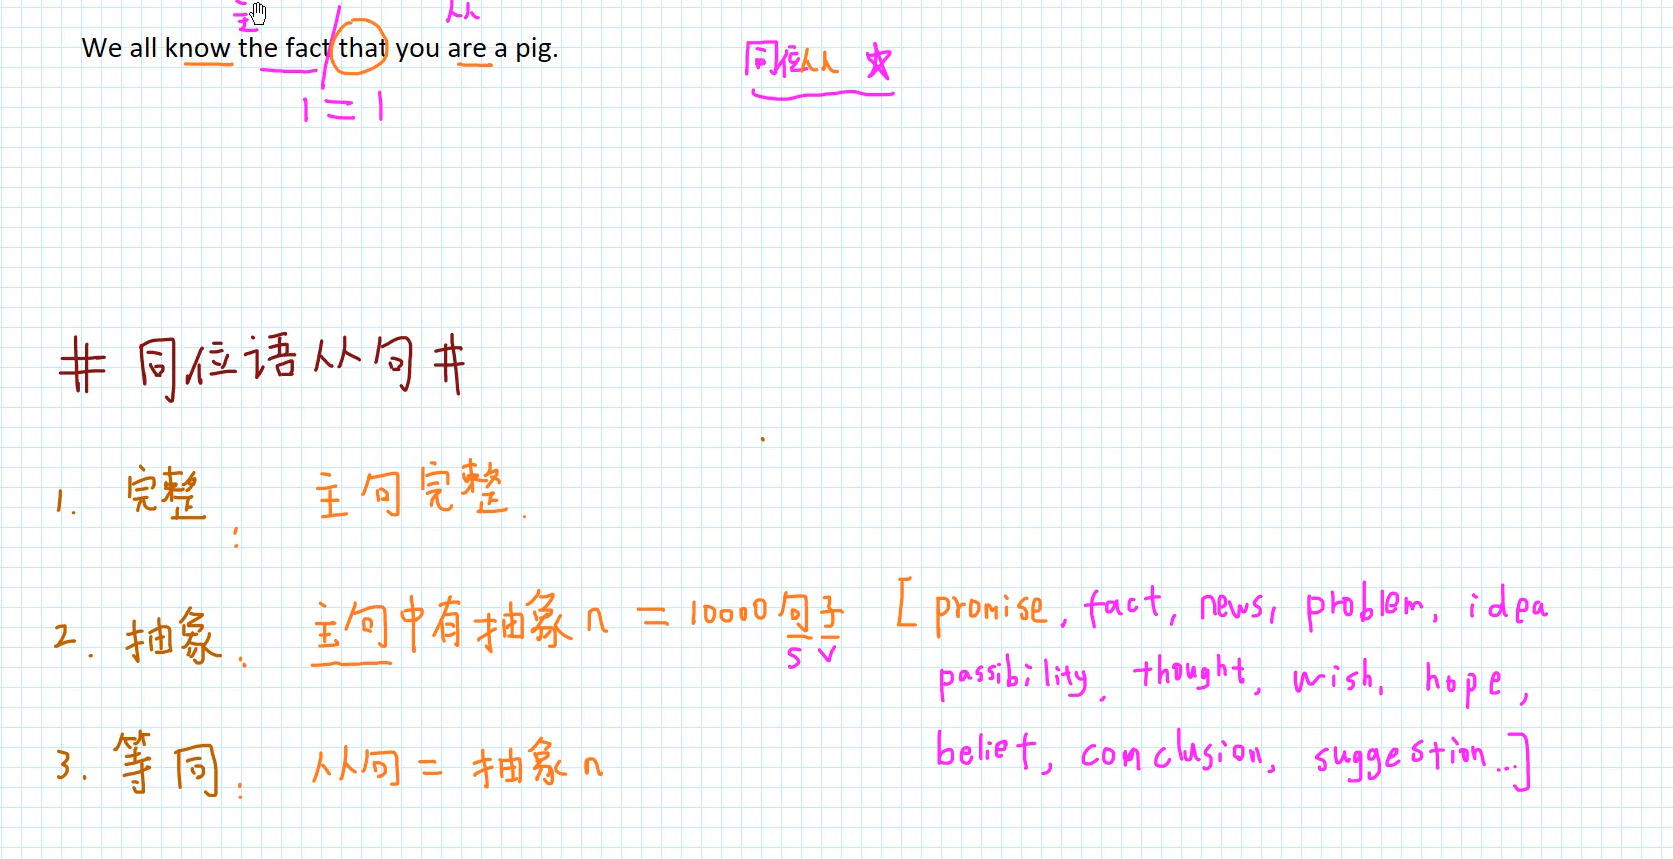 主 从
We all know the fact that you are a pig.
同位从 ☆
1 = 1
# 同位语从句 #
1. 完整: 主句完整.
2. 抽象: 主句中有抽象 n = 10000 句子 [promise, fact, news, problem, idea
S V
passibility, thought, wish, hope,
3. 等同: 从句 = 抽象 n
belief, conclusion, suggestion...]